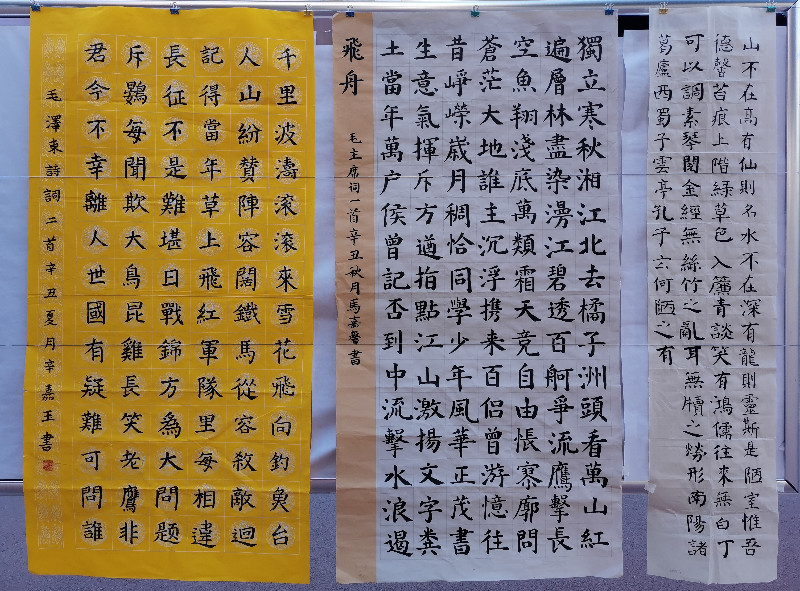 山不在高有仙則名水不在深有龍則靈斯是陋室惟吾
德馨苔痕上階綠草色入簾青談笑有鴻儒往來無白丁
可以調素琴閱金經無絲竹之亂耳無牘之勞形南陽諸
葛廬西蜀子雲亭孔子云何陋之有
獨立寒秋湘江北去橘子洲頭看萬山紅
遍層林盡染漫江碧透百舸爭流鷹擊長
空魚翔淺底萬類霜天竞自由悵寥廓問
蒼茫大地誰主沉浮携来百侣曾游憶往
昔崢嶸歲月稠恰同學少年風華正茂書
生意氣揮斥方遒指點江山激揚文字糞
土當年萬户侯曾記否到中流擊水浪遏
飛舟
毛主席词一首辛丑秋月馬嘉馨書
千里波濤滚滚來雪花飛向釣魚台
人山紛贊陣容闊鐵馬從容殺敵迴
記得當年草上飛紅軍隊里每相違
長征不是難堪日戰錦方為大問题
斥鷃每聞欺大鳥昆雞長笑老鷹非
君今不幸離人世國有疑難可問誰
毛澤東詩詞二首辛丑夏月辛嘉王書